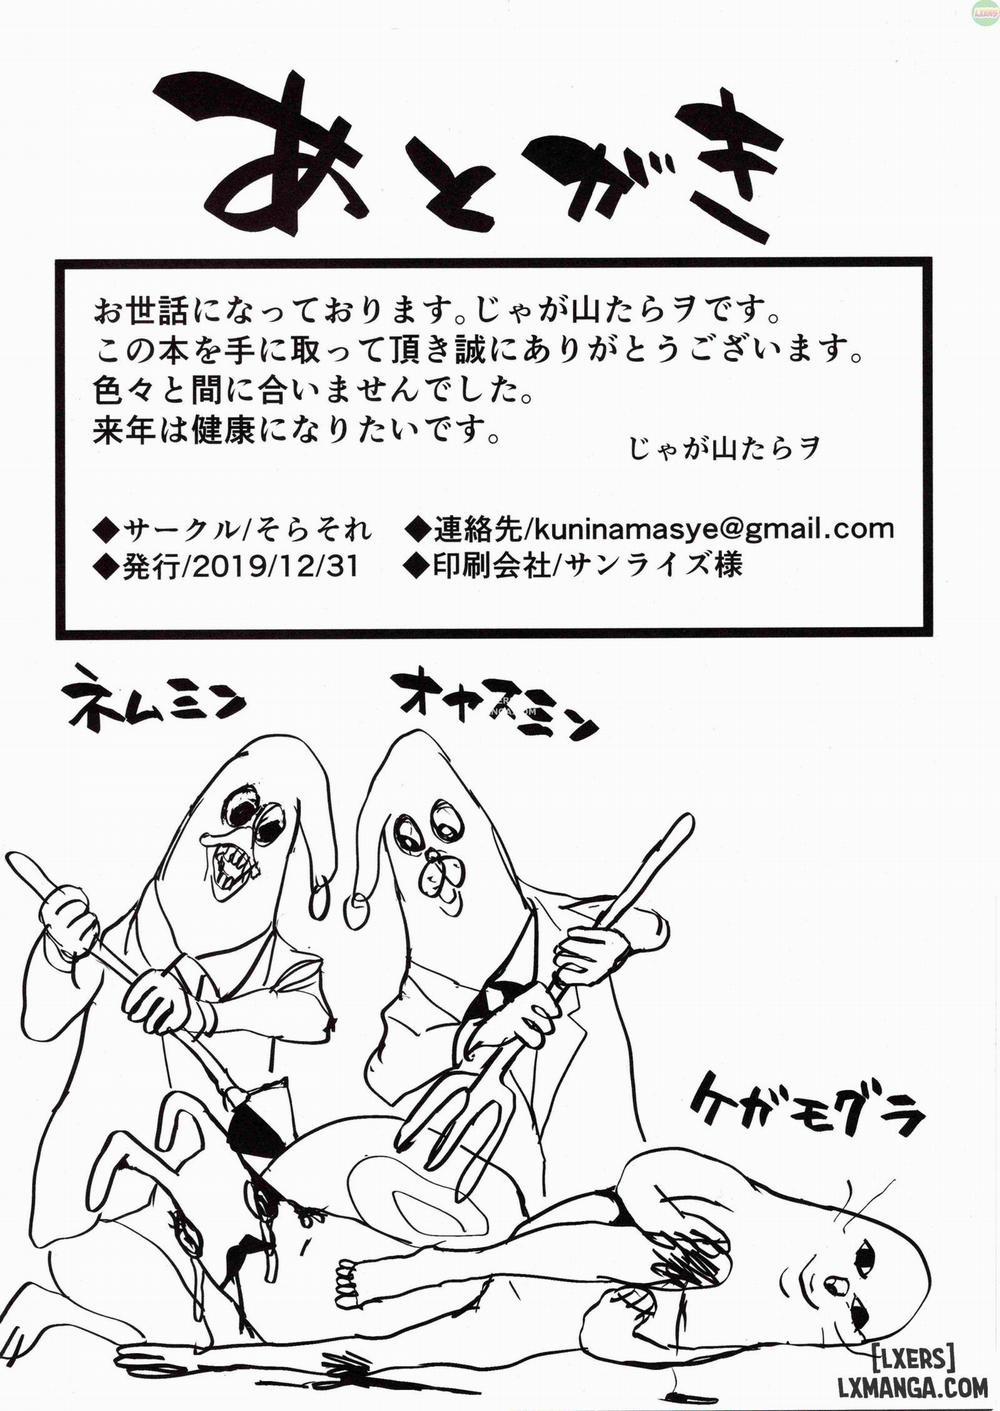 LXERS
あとがき
お世話になっております。じゃが山たらヲです。
この本を手に取って頂き誠にありがとうございます。
色々と間に合いませんでした。
来年は健康になりたいです。
じゃが山たらヲ
◆サークル/そらそれ ◆連絡先/kuninamasye@gmail.com
◆発行/2019/12/31 ◆印刷会社/サンライズ様
ネムミン
オヤスミン
ケガモグラ
[LXERS]
LXMANGA.COM